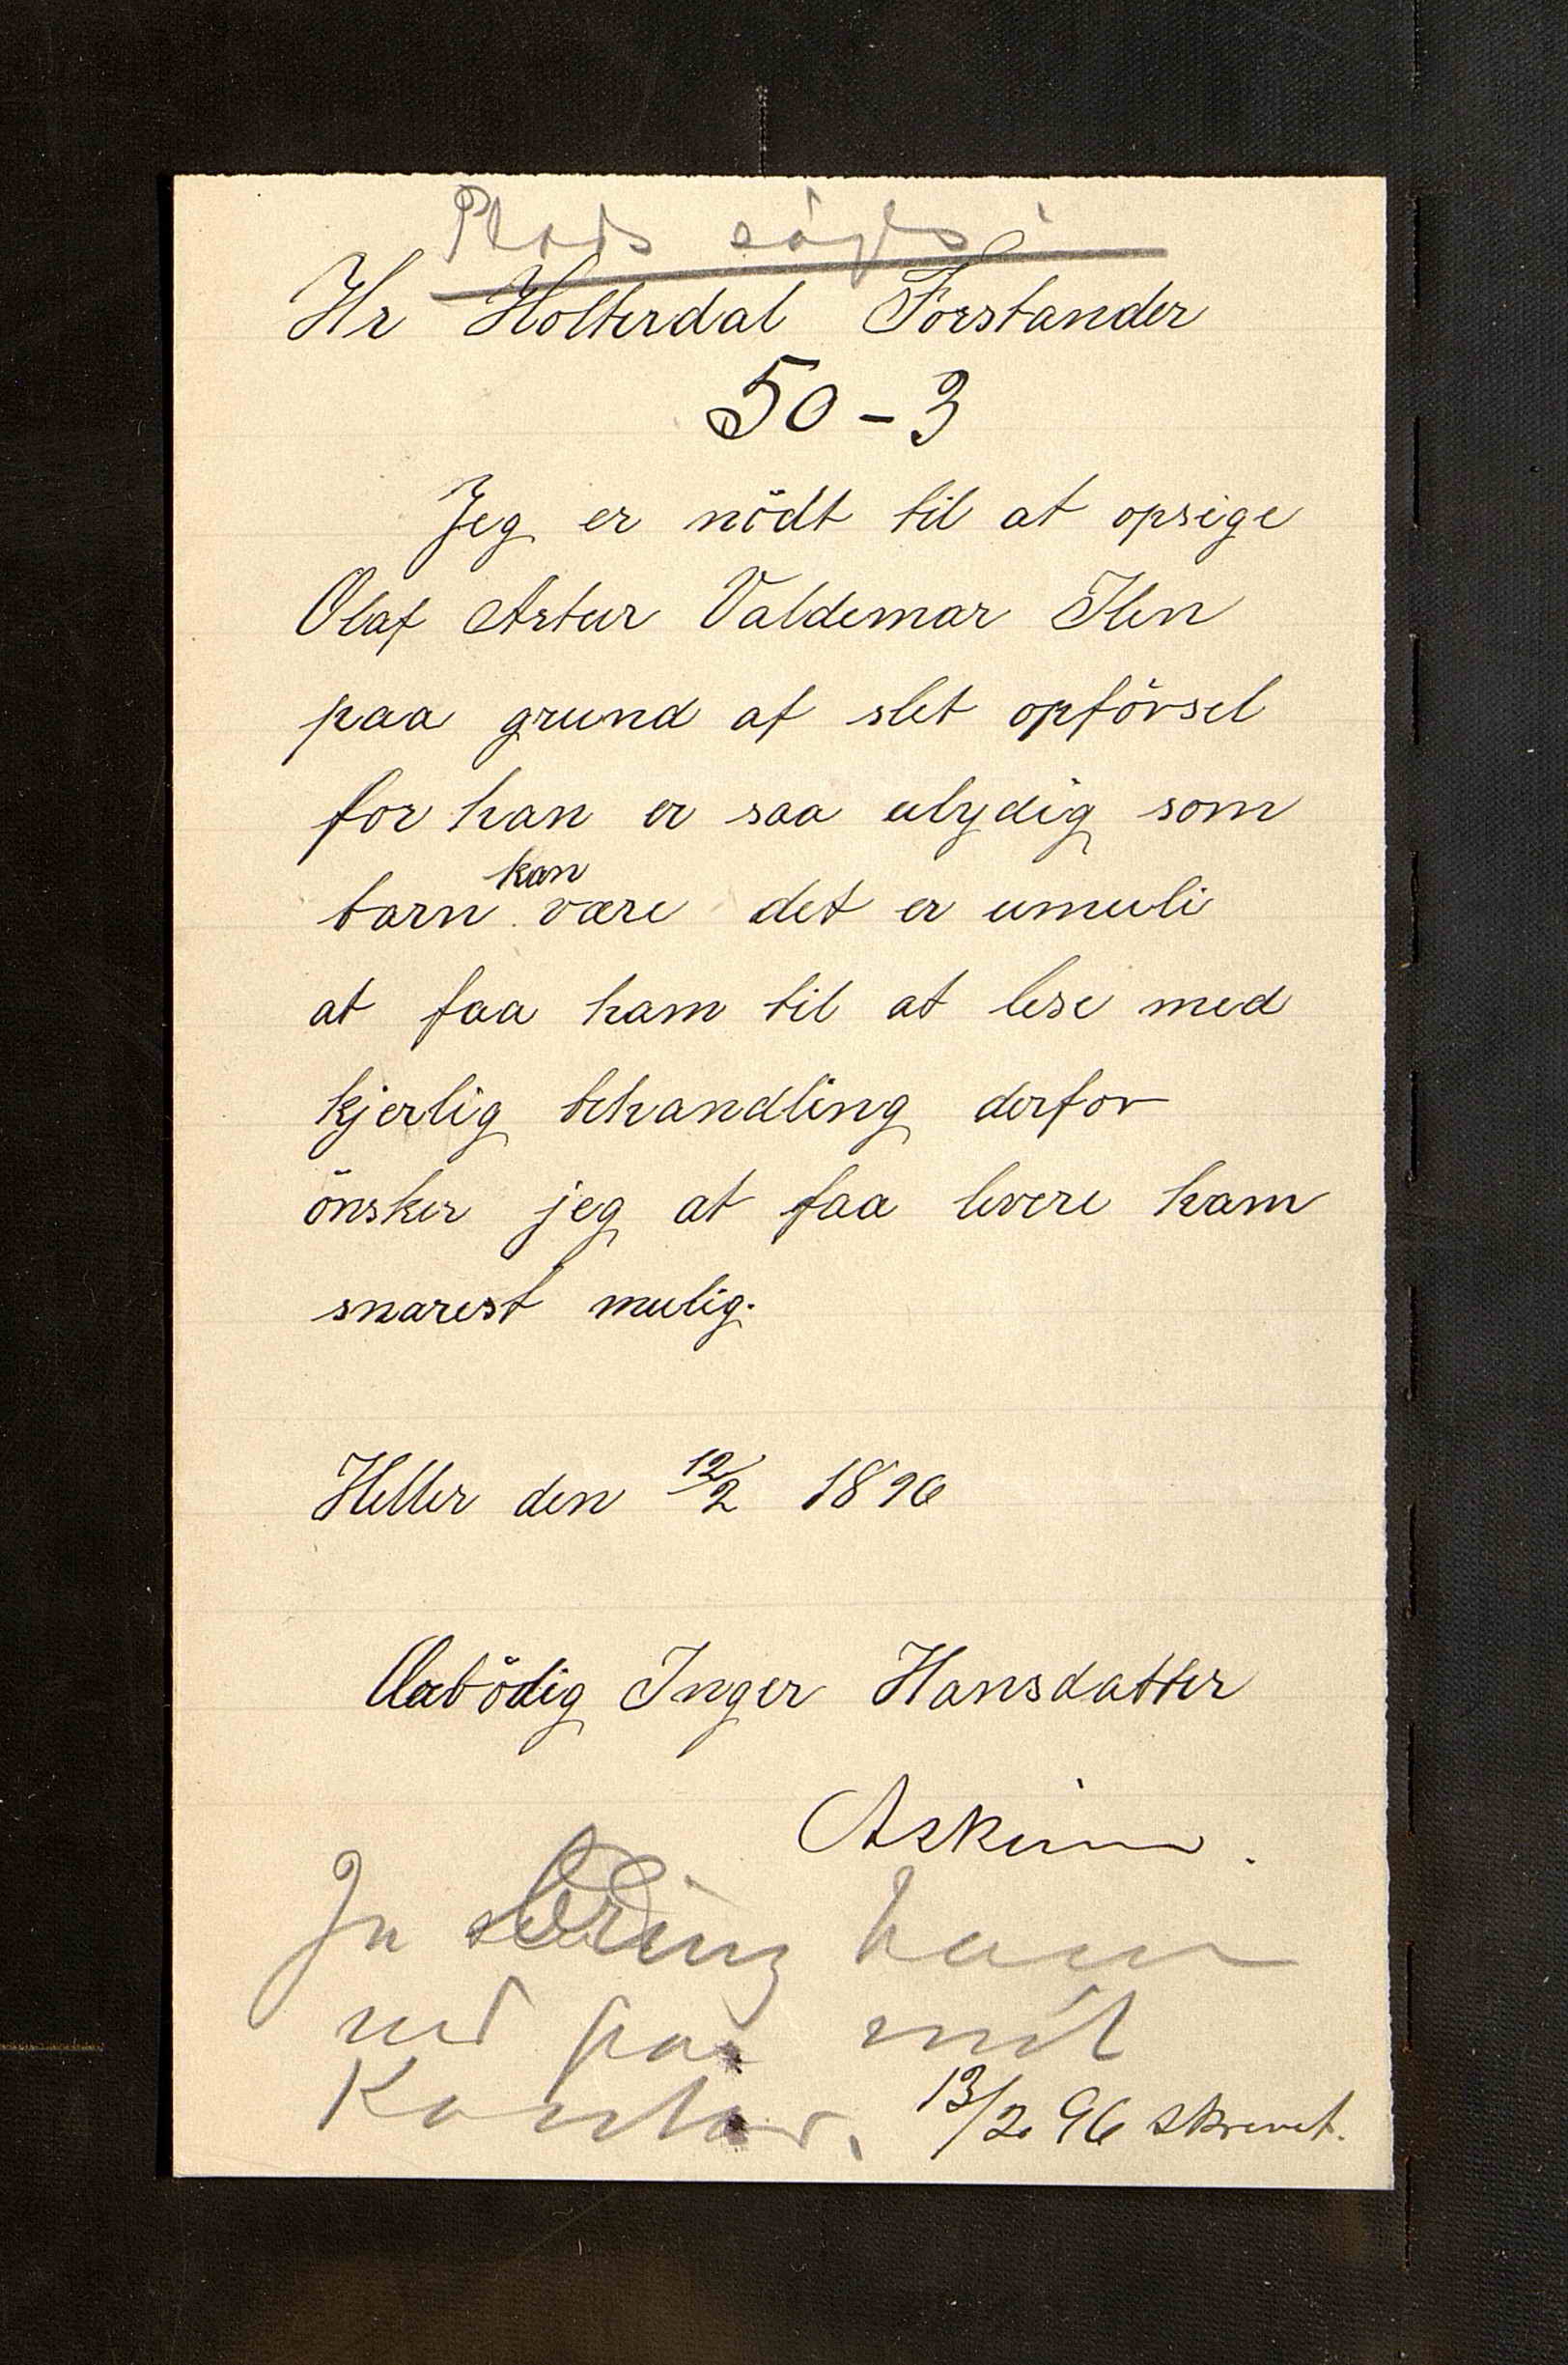 Plads søges
Hr Holterdal Forstander
50-3
Jeg er nödt til at opsige
Olaf Artur Valdemar Ilen
paa grund af slet opförsel
for han er saa ulydig som
barn kan være det er umuli
at faa ham til at lese med
kjerlig behandling derfor
önsker jeg at faa levere ham
snarest mulig.
Heller den 12/2 1896
Ærbödig Inger Hansdatter
Askim.
Ja bring ham
ned paa mit
Kontor. 13/2 96 skrevet.